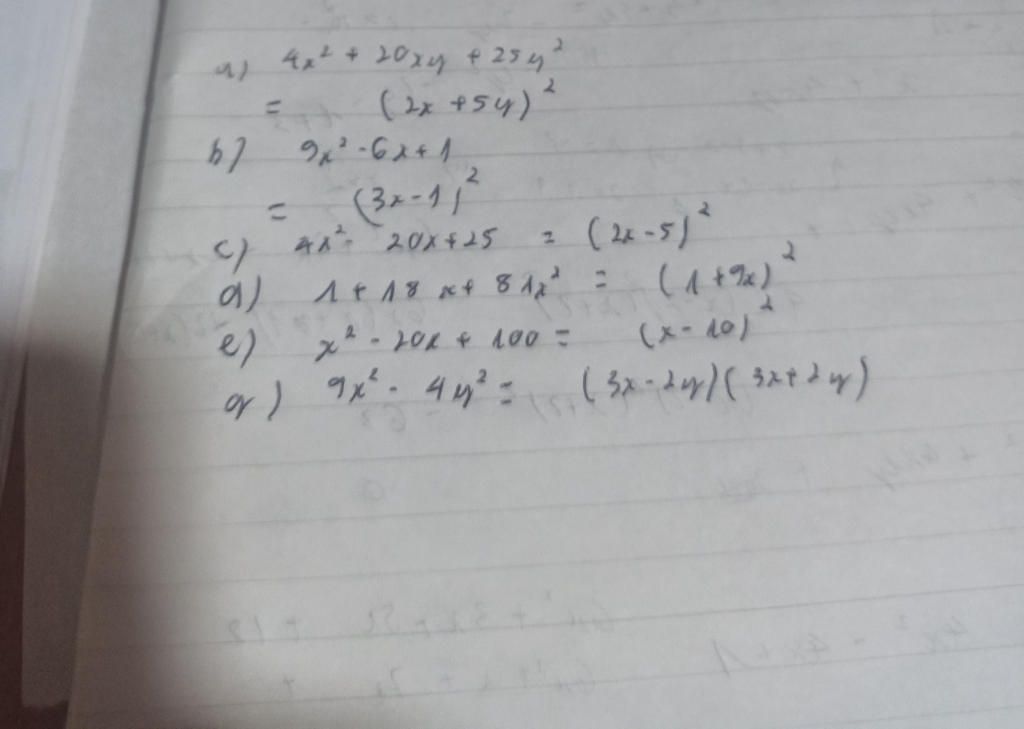 a) 4x² + 20xy + 25y²
= (2x + 5y)²
b) 9x² - 6x + 1
= (3x - 1)²
c) 4x² - 20x + 25 = (2x - 5)²
d) 1 + 18x + 81x² = (1 + 9x)²
e) x² - 20x + 100 = (x - 10)²
g) 9x² - 4y² = (3x - 2y)(3x + 2y)